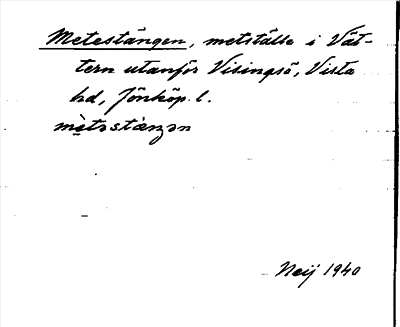 Metestången, metställe i Vät-
tern utanför Visingsö, Vista
hd, Jönköp. l.
mètəstàŋən
Neij 1940